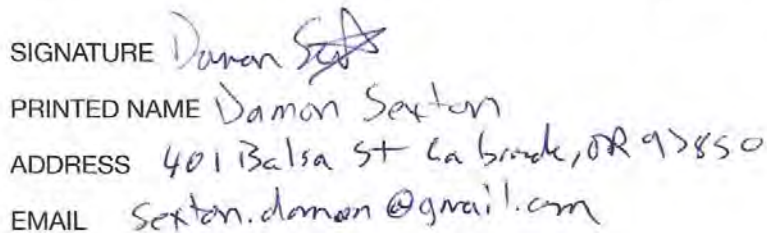 SIGNATURE Damon
PRINTED NAME Damon Sexton
ADDRESS 401 Balsa St La Grande, OR 97850
EMAIL Sexton.damon@gmail.com